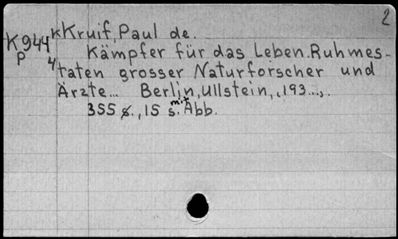 2
K944k Kruif, Paul de.
P 4 Kämpfer für das Leben. Ruhmes-
taten grosser Naturforscher und
Ärzte... Berlin, Ullstein, ,193...,.
355 s., 15 s. mit Abb.